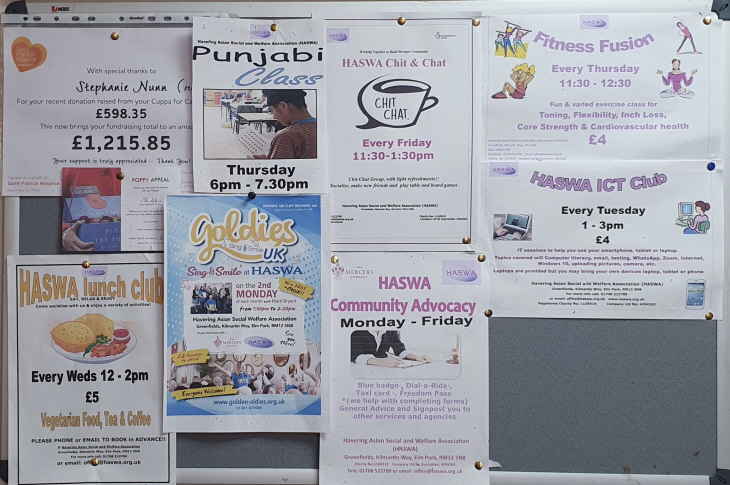 With special thanks to
Stephanie Nunn
For your recent donation raised from your Cuppa for
£598.35
This now brings your fundraising total to an
£1,215.85
Your support is truly appreciated — Thank You!
Saint Francis Hospice
POPPY APPEAL
Havering Asian Social and Welfare Association (HASWA)
Punjabi
Class
Thursday
6pm - 7.30pm
HASWA
Working Together to Build Stronger Communities
HASWA Chit & Chat
CHIT
CHAT.
Every Friday
11:30-1:30pm
Chit Chat Group, with light refreshments!!
Socialise, make new friends and play table and board games.
HASWA
Fitness Fusion
Every Thursday
11:30 - 12:30
Fun & varied exercise class for
Toning, Flexibility, Inch Loss,
Core Strength & Cardiovascular health
£4
HASWA ICT Club
Every Tuesday
1 - 3pm
£4
IT sessions to help you use your smartphone, tablet or laptop.
Topics covered will Computer literacy, email, texting, WhatsApp, Zoom, Internet,
Windows 10, uploading pictures, camera, etc.
Laptops are provided but you may bring your own devices laptop, tablet or phone
HASWA lunch club
EAT, RELAX & ENJOY
Come socialise with us & enjoy a variety of activities!
Every Weds 12 - 2pm
£5
Vegetarian Food, Tea & Coffee
PLEASE PHONE or EMAIL TO BOOK in ADVANCE!!
Havering Asian Social and Welfare Association
Greenfields, Kilmartin Way, Elm Park, RM12 5NB
or email: office@haswa.org.uk
PATRON: SIR CLIFF RICHARD, OBE
Goldies
UK
Sing & Smile
Sing & Smile at HASWA
on the 2nd
MONDAY
of each month with Mark Bryant
Havering Asian Social Welfare Association
Greenfields, Kilmartin Way, Elm Park, RM12 5NB
Everyone Welcome!
www.golden-oldies.org.uk
01761 470006
THE
MERCERS'
COMPANY
HASWA
HASWA
Community Advocacy
Monday - Friday
Blue badge-, Dial-a-Ride-,
Taxi card -, Freedom Pass-
*(we help with completing forms)
General Advice and Signpost you to
other services and agencies
Havering Asian Social and Welfare Association
(HASWA)
Greenfields, Kilmartin Way, Elm Park, RM12 5NB
Tele: 01708 522789 or email: office@haswa.org.uk